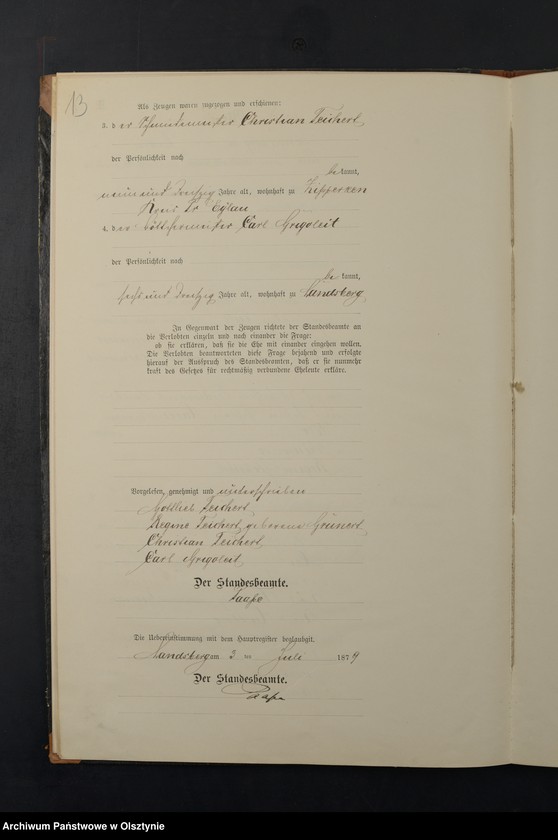 13
Als Zeugen waren zugezogen und erschienen:
3. der Christian Teichert,
der Persönlichkeit nach
be kannt,
neun und dreißig Jahre alt, wohnhaft zu
Kreis Pr. Eylau
4. der Böttchermeister Carl
der Persönlichkeit nach
be kannt,
sechs und dreißig Jahre alt, wohnhaft zu Landsberg.
In Gegenwart der Zeugen richtete der Standesbeamte an
die Verlobten einzeln und nach einander die Frage:
ob sie erklären, daß sie die Ehe mit einander eingehen wollen.
Die Verlobten beantworteten diese Frage bejahend und erfolgte
hierauf der Ausspruch des Standesbeamten, daß er sie nunmehr
kraft des Gesetzes für rechtmäßig verbundene Eheleute erkläre.
Vorgelesen, genehmigt und unterschrieben
Gottlieb Teichert,
Regine Teichert, geborene Grunert,
Christian Teichert,
Carl
Der Standesbeamte.
Die Uebereinstimmung mit dem Hauptregister beglaubigt.
Landsberg am 3 ten Juli 1879
Der Standesbeamte.
Archiwum Państwowe w Olsztynie